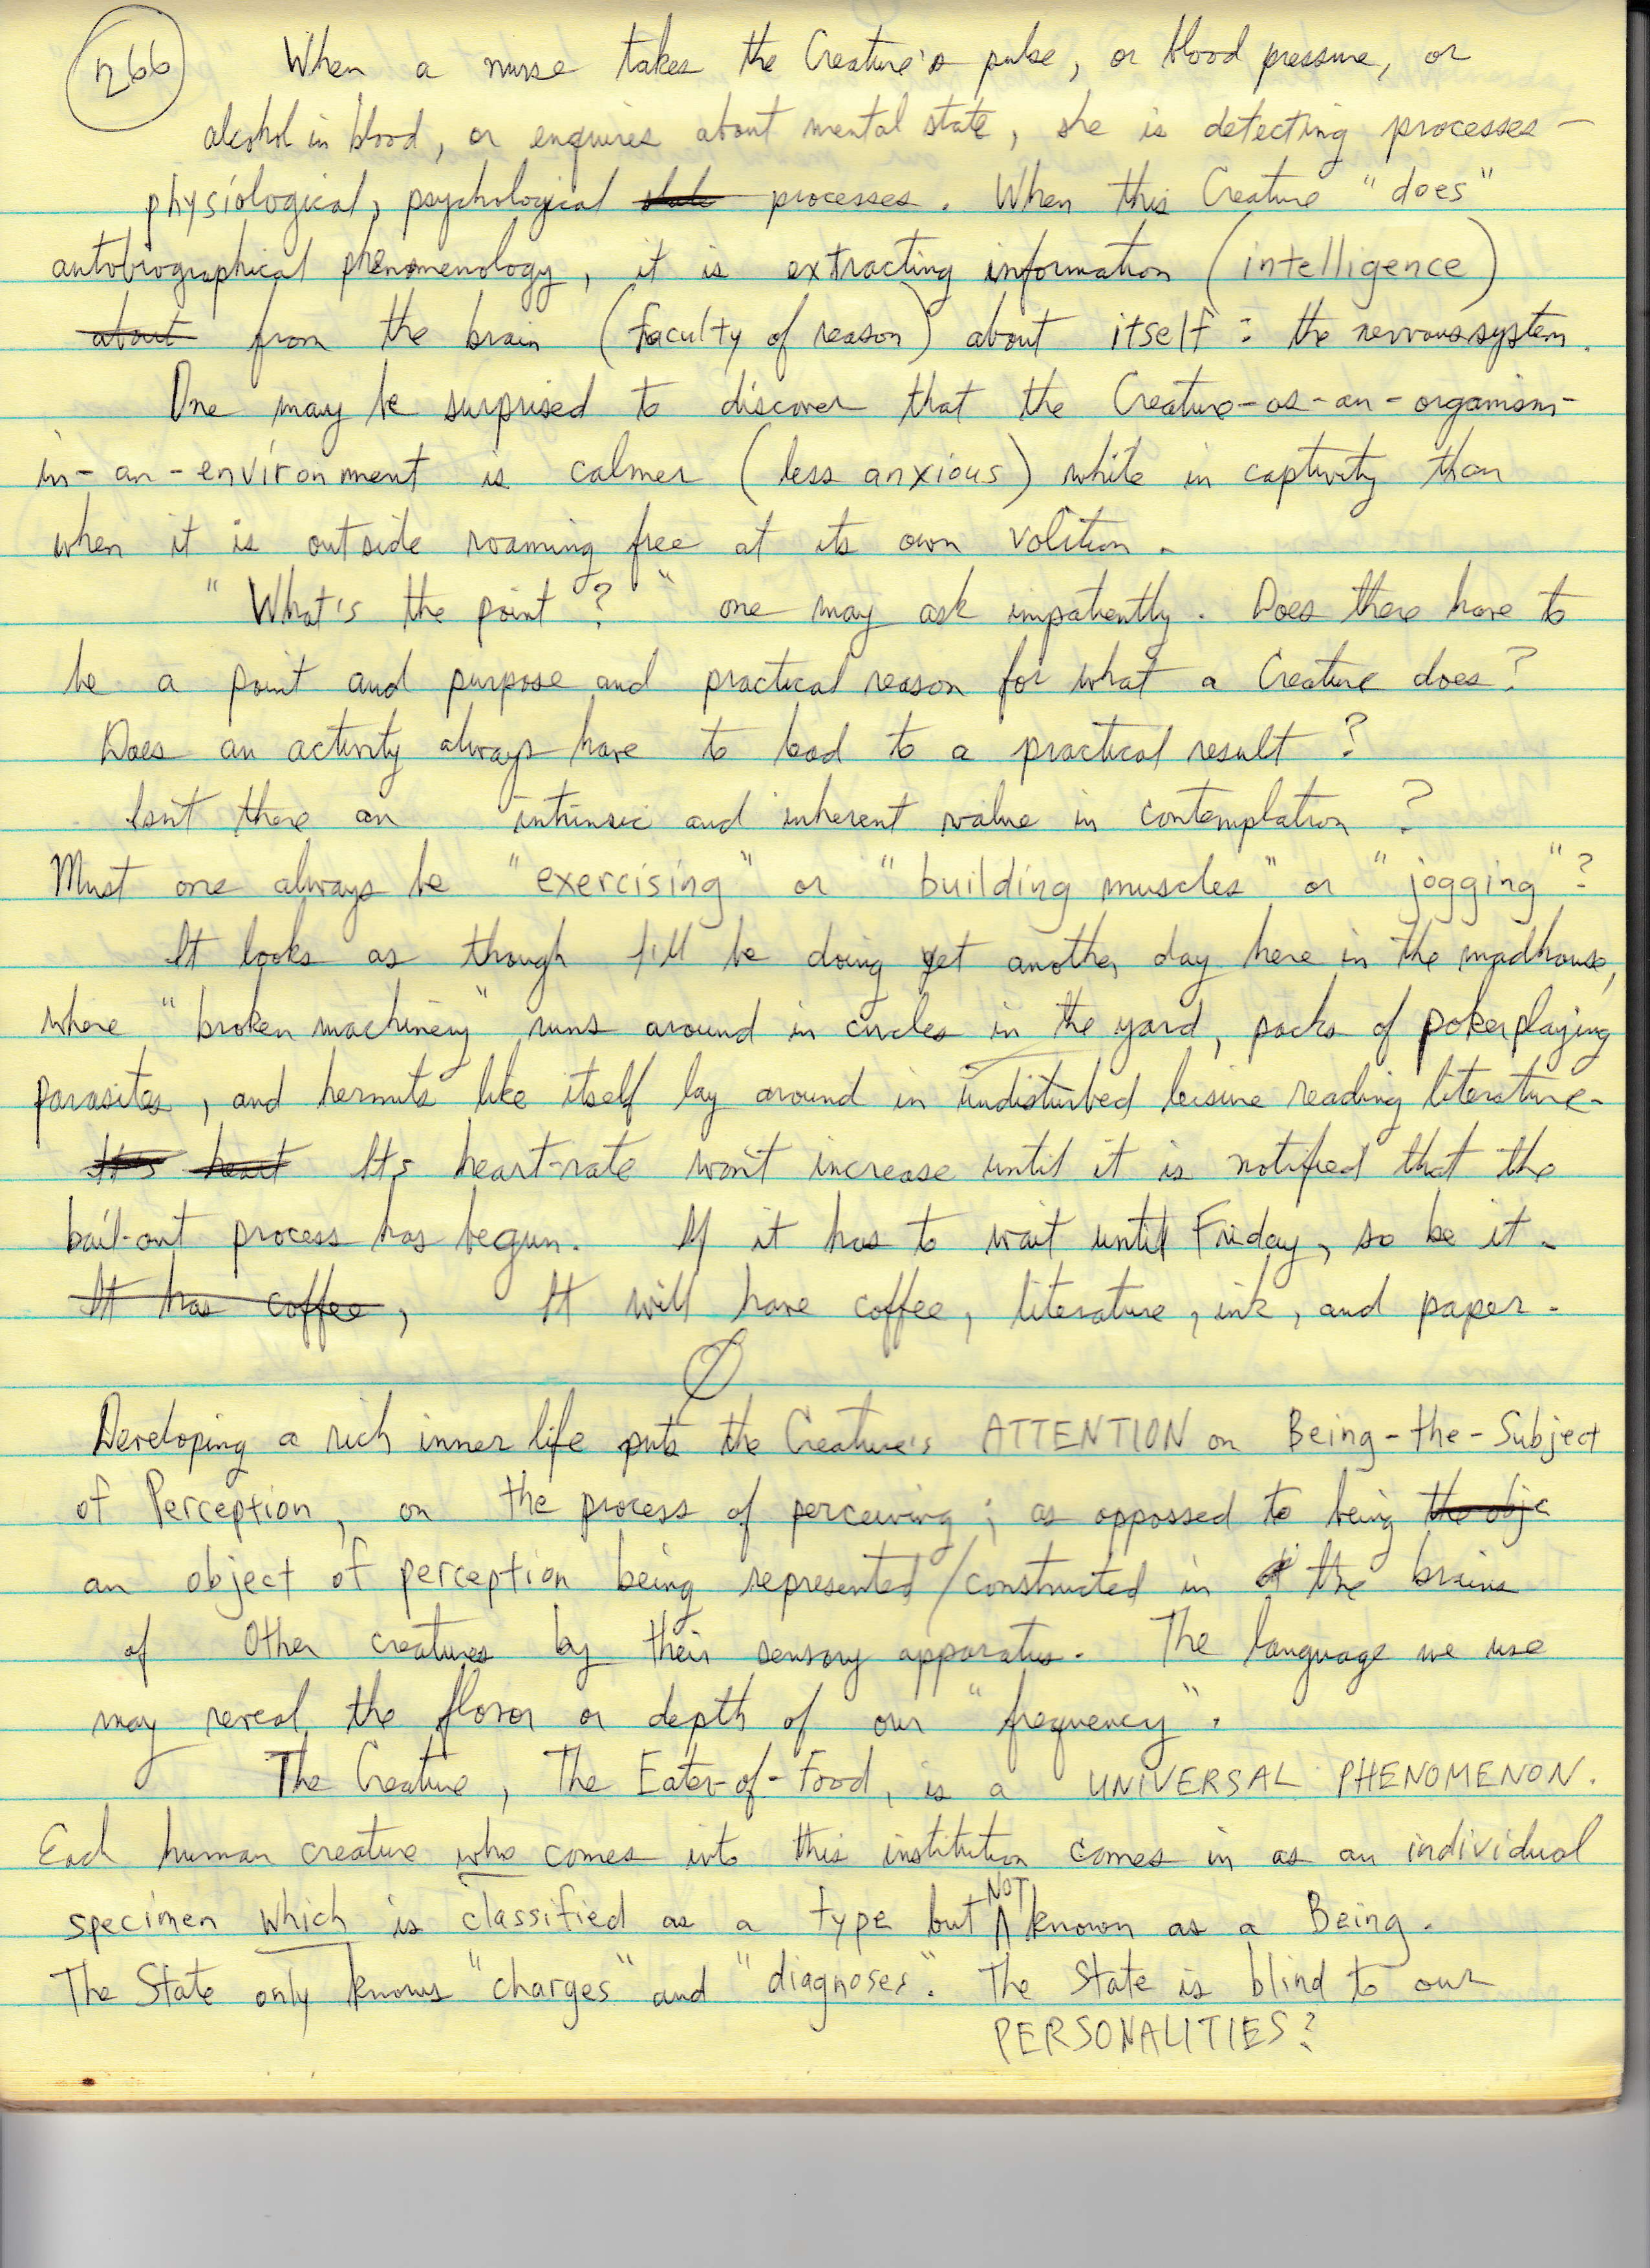 266 When a nurse takes the Creature's pulse, or blood pressure, or
alcohol in blood, or enquires about mental state, she is detecting processes –
physiological, psychological processes. When this Creature "does"
autobiographical phenomenology, it is extracting information (intelligence)
about from the brain (faculty of reason) about itself: the nervous system.
One may be surprised to discover that the Creature-as-an-organism-
in-an-environment is calmer (less anxious) while in captivity than
when it is outside roaming free at its own volition.
"What's the point?" one may ask impatiently. Does there have to
be a point and purpose and practical reason for what a Creature does?
Does an activity always have to lead to a practical result?
Isn't there an intrinsic and inherent value in contemplation?
Must one always be "exercising" or "building muscles" or "jogging"?
It looks as though I'll be doing yet another day here in the madhouse,
where "broken machinery" runs around in circles in the yard, packs of pokerplaying
parasites, and hermits like itself lay around in undisturbed leisure reading literature.
It's heart Its heart-rate won't increase until it is notified that the
bail-out process has begun. If it has to wait until Friday, so be it.
It has coffee, It will have coffee, literature, ink, and paper.
Developing a rich inner life puts the Creature's ATTENTION on Being-the-Subject
of Perception, on the process of perceiving; as oppossed to being the objc
an object of perception being represented/constructed in the brains
of Other creatures by their sensory apparatus. The language we use
may reveal the flavor or depth of our "frequency".
The Creature, The Eater-of-Food, is a UNIVERSAL PHENOMENON.
Each human creature who comes into this institution comes in as an individual
specimen which is classified as a type but NOT known as a Being.
The State only knows "charges" and "diagnoses". The State is blind to our
PERSONALITIES?